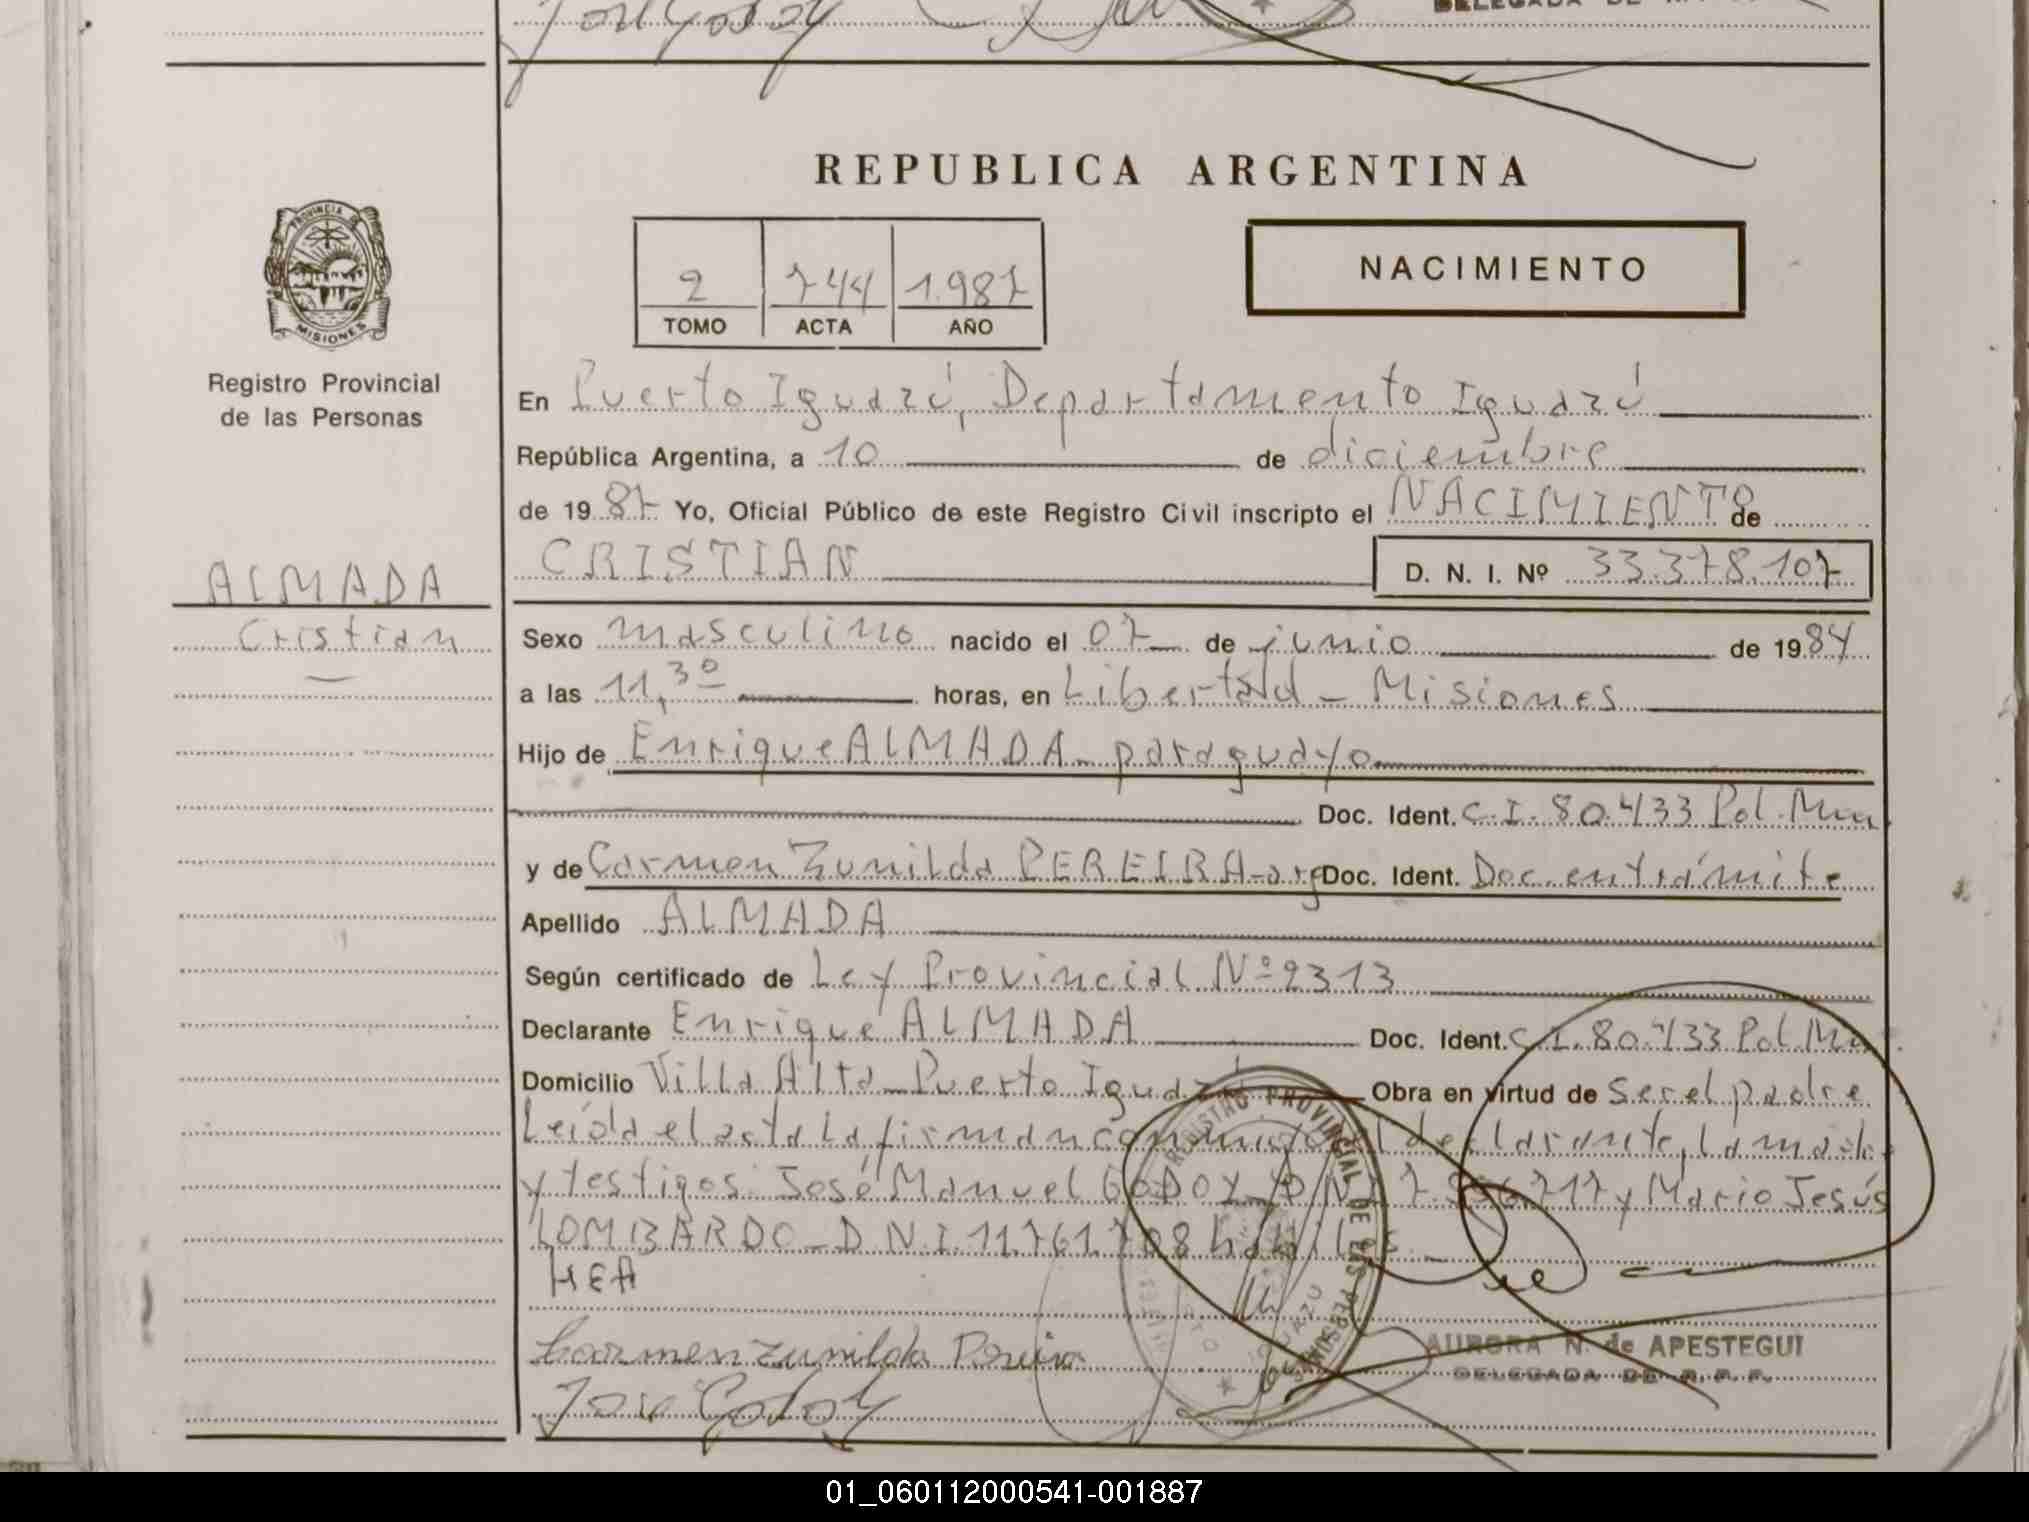 DELEGADA DE
REPUBLICA ARGENTINA
PROVINCIA DE
MISIONES
Registro Provincial
de las Personas
2 744 1.987
TOMO ACTA AÑO
NACIMIENTO
En Puerto Iguazú, Departamento Iguazú
República Argentina, a 10 de diciembre
de 1987 Yo, Oficial Público de este Registro Civil inscripto el NACIMIENTO de
CRISTIAN D. N. I. Nº 33.378.107
ALMADA
Cristian
Sexo masculino nacido el 07 de junio de 1984
a las 11,30 horas, en Libertad - Misiones
Hijo de Enrique ALMADA - paraguayo
Doc. Ident. C.I. 80.433 Pol. Mnes
y de Carmen Zunilda PEREIRA - arg Doc. Ident. Doc. en trámite
Apellido ALMADA
Según certificado de Ley Provincial Nº 2313
Declarante Enrique ALMADA Doc. Ident. C.I. 80.433 Pol.
Domicilio Villa Alta - Puerto Iguazú Obra en virtud de ser el padre
Leída el acta la firman conmigo el declarante, la madre
y testigos: José Manuel GODOY - D.N.I. 7. .717 y Mario Jesús
LOMBARDO - D.N.I. 11.761.708 hábiles. -
HEA
REGISTRO PROVINCIAL DE LAS PERSONAS
IGUAZU
Carmen Zunilda Pereira
AURORA N. de APESTEGUI
DELEGADA DE R. P. P.
José Godoy
01_060112000541-001887